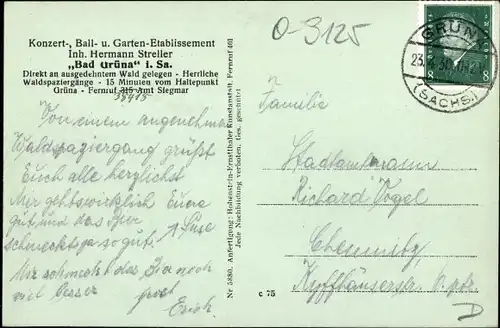 Konzert-, Ball- u. Garten-Etablissement
Inh. Hermann Streller
„Bad Grüna" i. Sa.
Direkt an ausgedehntem Wald gelegen - Herrliche
Waldspaziergänge - 15 Minuten vom Haltepunkt
Grüna - Fernruf 315 Amt Siegmar
38415
Von einem angenehmen
Waldspaziergang grüßt
Euch alle herzlichst
Mir gehts wirklich Eure
gut, und das Bier Suse
schmeckt ja so gut.
Mir schmeckt das Bier noch
viel besser Erich.
Nr 5880. Anfertigung: Hohenstein-Ernstthaler Kunstanstalt. Fernruf 401
Jede Nachbildung verboten. Ges. geschützt
c 75
O-3125
GRÜNA
(SACHS.)
8 8
Familie
Stadtamtmann
Richard Vogel
Chemnitz
Kyffhäuserstr.
D